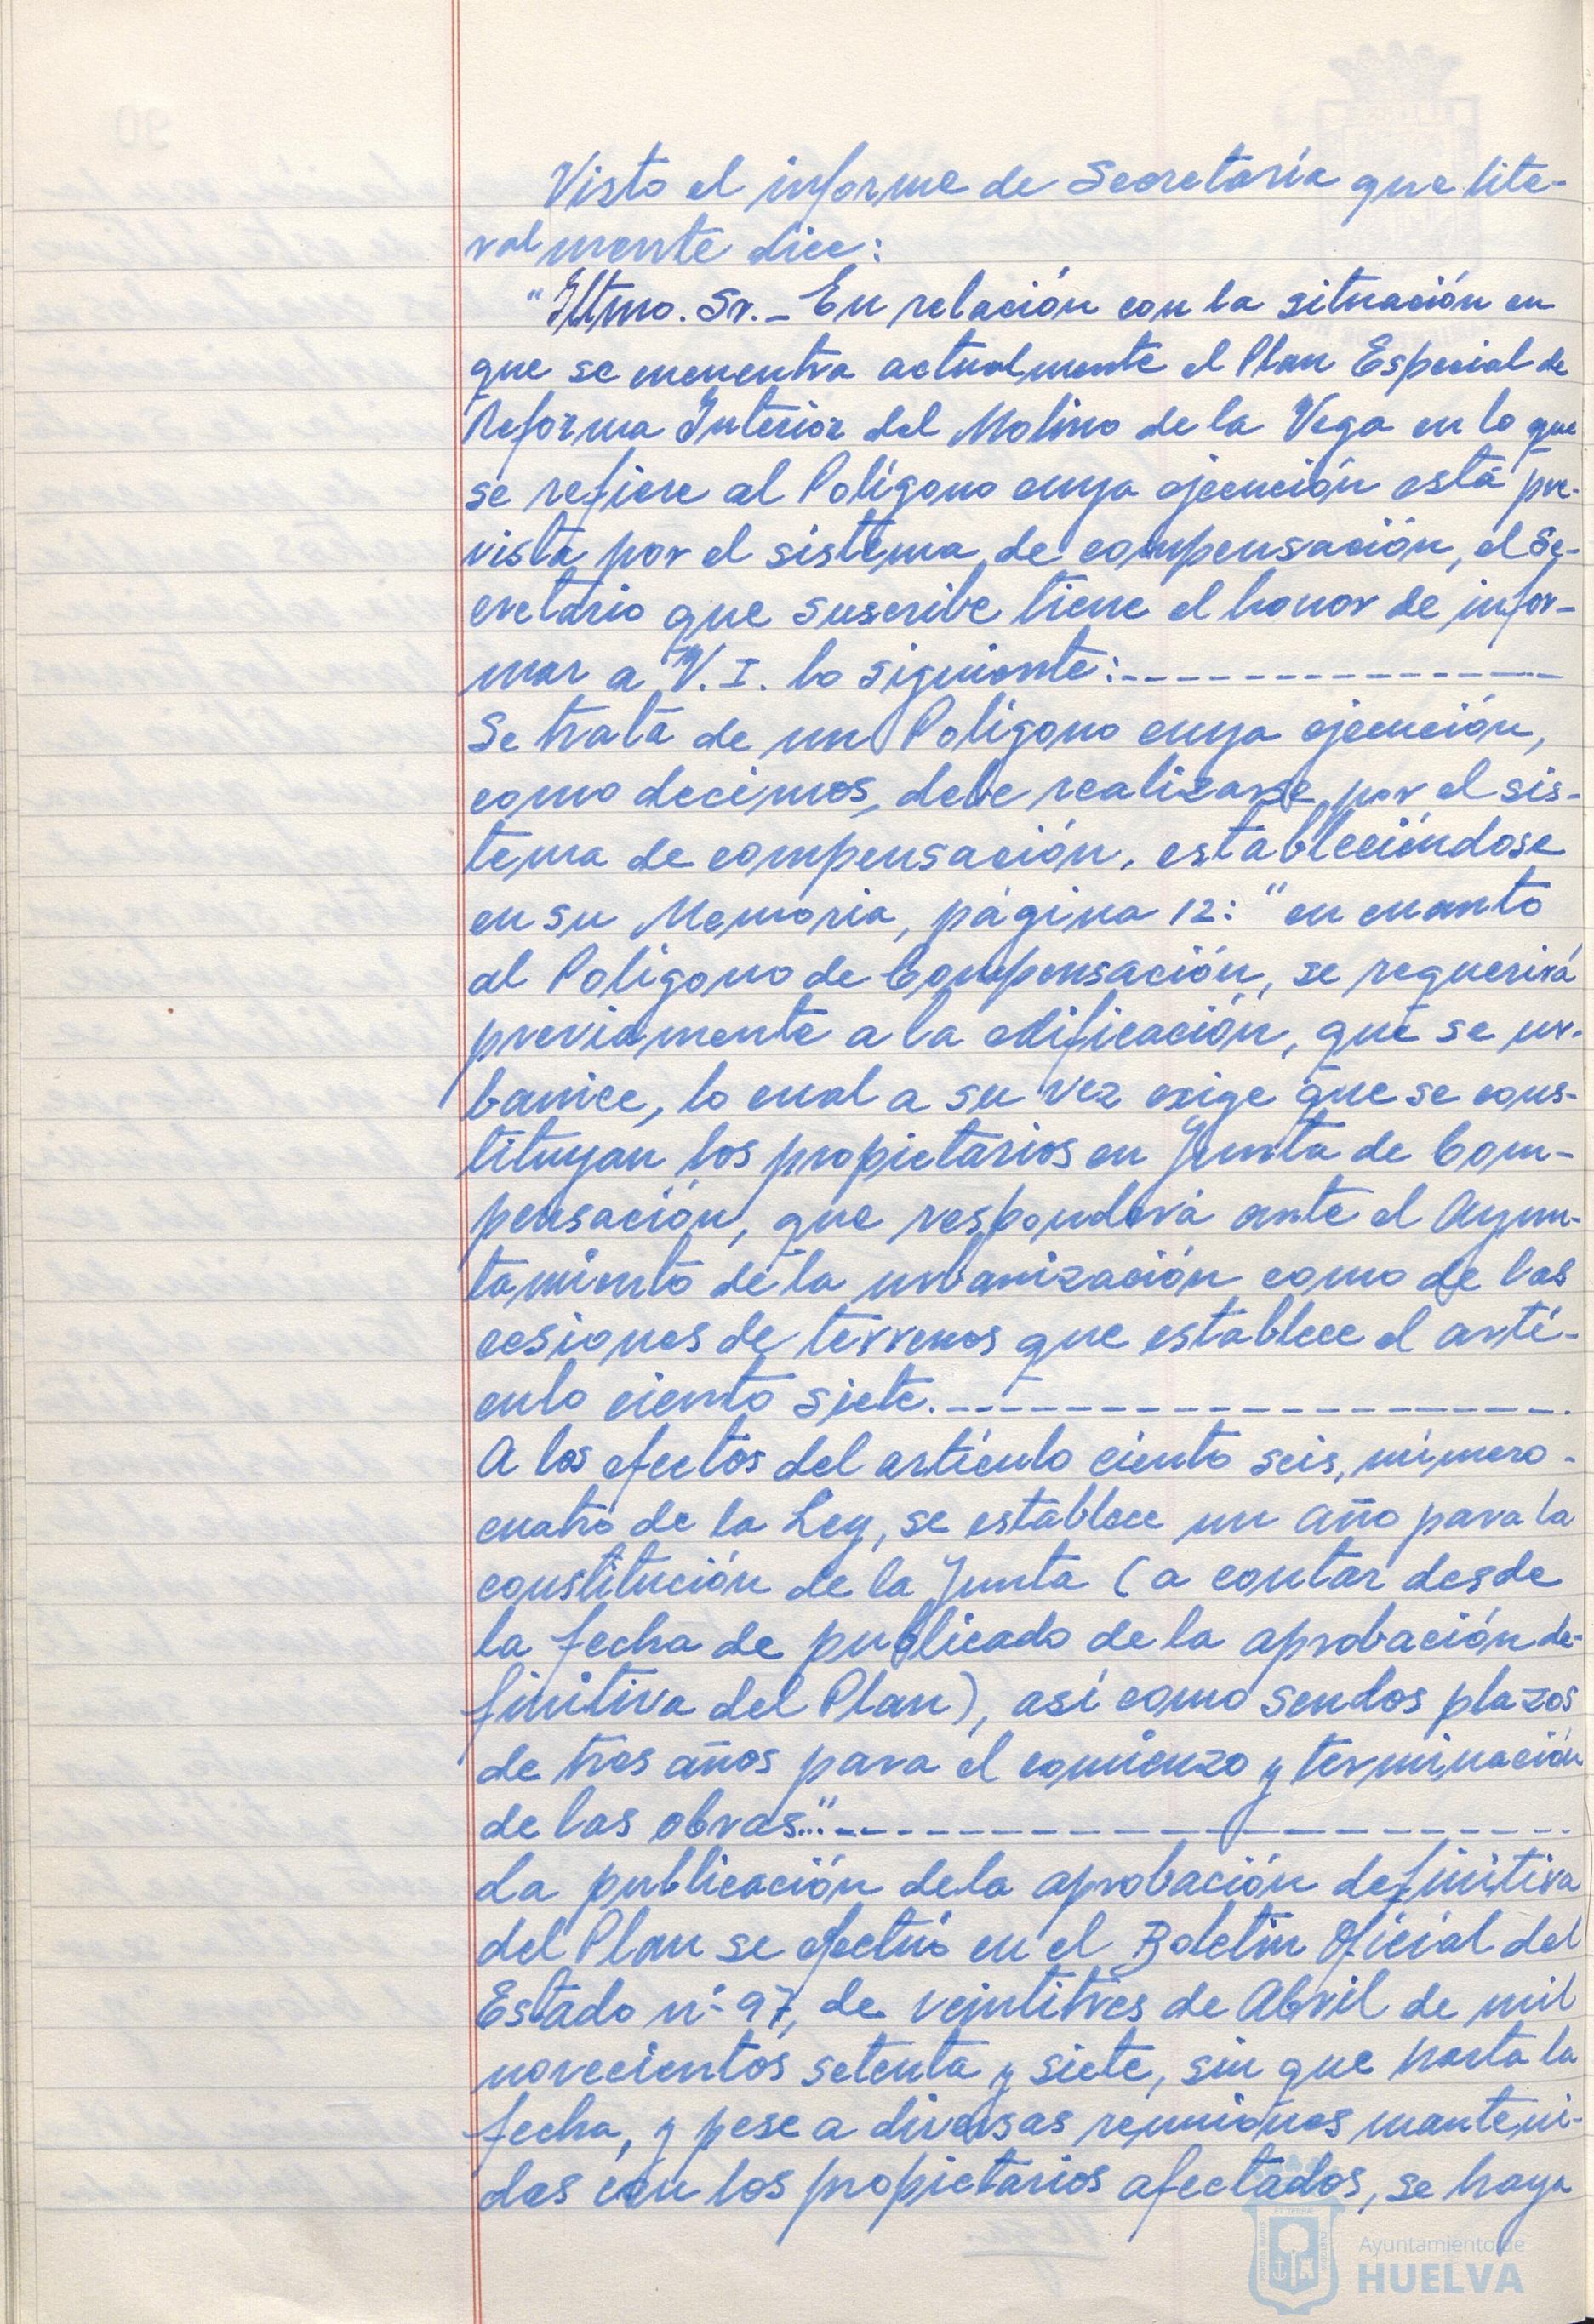 Visto el informe de Secretaría que lite-
ralmente dice:
"Iltmo. Sr.- En relación con la situación en
que se encuentra actualmente el Plan Especial de
Reforma Interior del Molino de la Vega en lo que
se refiere al Polígono cuya ejecución está pre-
vista por el sistema de compensación, el Se-
cretario que suscribe tiene el honor de infor-
mar a V. I. lo siguiente:----------------
Se trata de un Polígono cuya ejecución,
como decimos, debe realizarse por el sis-
tema de compensación, estableciéndose
en su Memoria, página 12: "en cuanto
al Polígono de Compensación, se requerirá
previamente a la edificación, que se ur-
banice, lo cual a su vez exige que se cons-
tituyan los propietarios en Junta de Com-
pensación, que responderá ante el Ayun-
tamiento de la urbanización como de las
cesiones de terrenos que establece el artí-
culo ciento siete.---------------------
A los efectos del artículo ciento seis, número-
cuatro de la Ley, se establece un año para la
constitución de la Junta (a contar desde
la fecha de publicado de la aprobación de-
finitiva del Plan), así como sendos plazos
de tres años para el comienzo y terminación
de las obras..."---------------------
La publicación de la aprobación definitiva
del Plan se efectuó en el Boletín Oficial del
Estado nº 97, de veintitres de Abril de mil
novecientos setenta y siete, sin que hasta la
fecha, y pese a diversas reuniones manteni-
das con los propietarios afectados, se haya
Ayuntamiento de
HUELVA